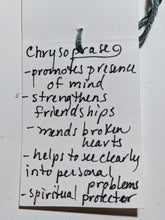 Chrysoprase
- promotes presence
of mind
- strengthens
friendships
- mends broken
hearts
- helps to see clearly
into personal
problems
- spiritual protector